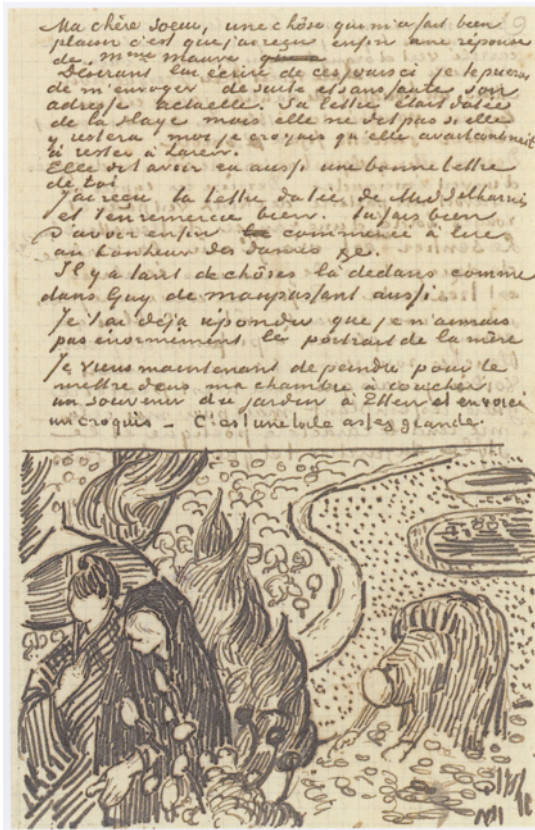 Ma chère soeur, une chôse qui m'a fait bien
plaisir c'est que j'ai reçu enfin une réponse
de mme Mauve
Desirant lui écrire de ces jours ci je te prierai
de m'envoyer de suite et sans faute son
adresse actuelle. Sa lettre était datée
de la Haye mais elle ne dit pas si elle
y restera moi je croyais qu'elle avait continué
à rester à Laren.
Elle dit avoir eu aussi une bonne lettre
de toi
J'ai reçu ta lettre datée de Middelharnis
et t'en remercie bien. Tu fais bien
d'avoir enfin commencé à lire
au bonheur des dames &c.
Il y a tant de chôses là dedans comme
dans Guy de maupassant aussi.
Je t'ai déjà répondu que je n'aimais
pas enormement le portrait de la mère
Je viens maintenant de peindre pour le
mettre dans ma chambre à coucher
un souvenir du jardin à Etten et en voici
un croquis – C'est une toile assez grande.